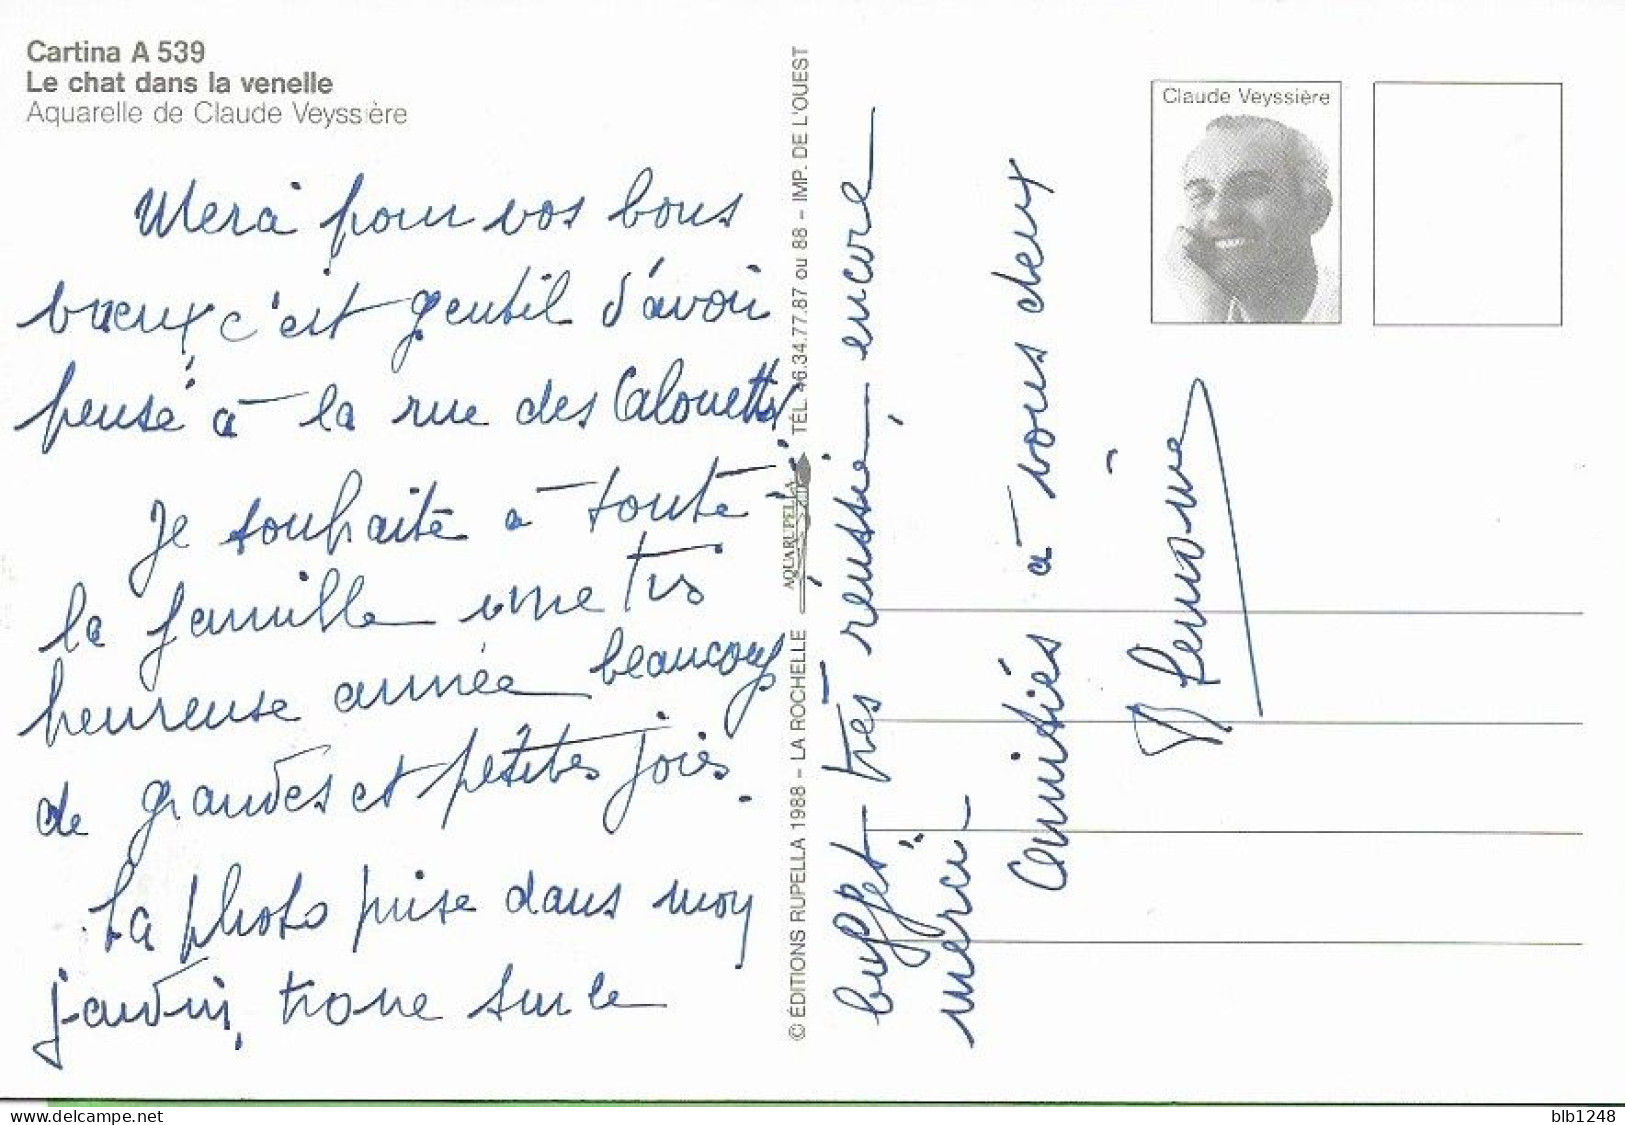 Cartina A 539
Le chat dans la venelle
Aquarelle de Claude Veyssière
Merci pour vos bons
vœux c'est gentil d'avoir
pensé à la rue des Calouettes
Je souhaite à toute
la famille une très
heureuse année beaucoup
de grandes et petites joies.
La photo prise dans mon
jardin, trone sur le
© ÉDITIONS RUPELLA 1988 – LA ROCHELLE
AQUARUPELLA
TÉL. 46.34.77.87 ou 88 – IMP. DE L'OUEST
buffet très réussie encore
merci –
Amitiés à vous deux
Claude Veyssière
www.delcampe.net
blb1248